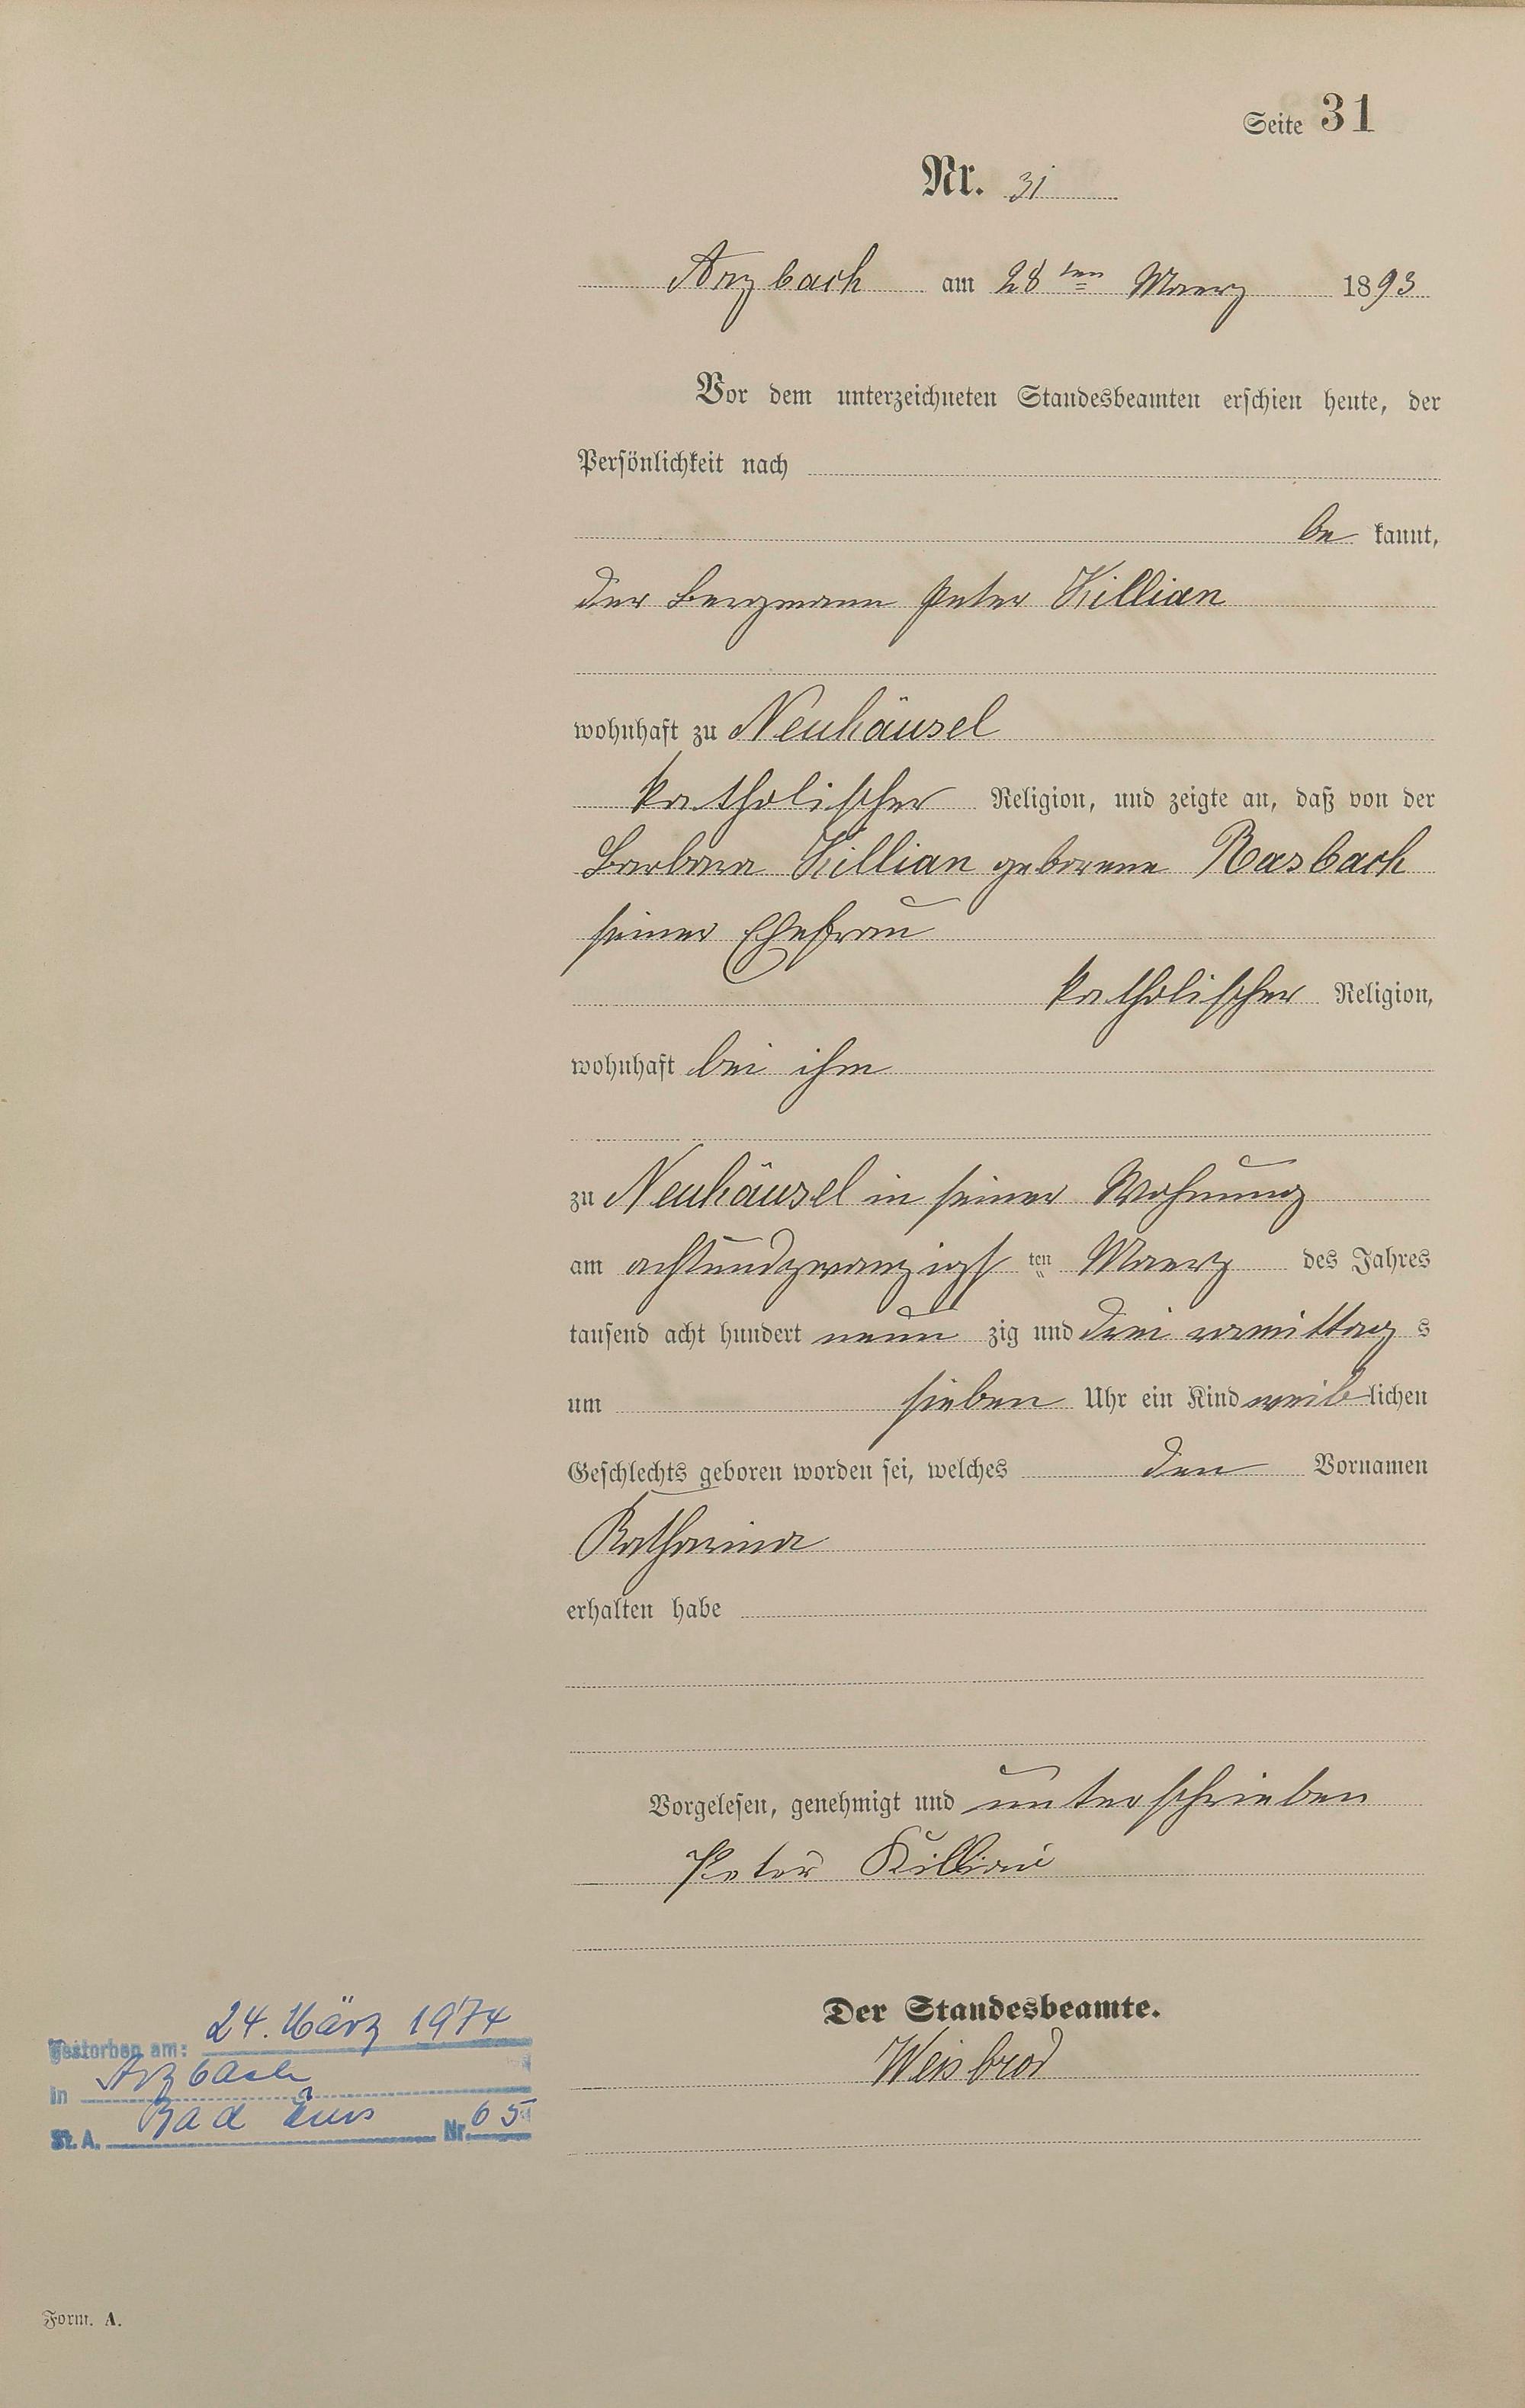 Seite 31
Nr. 31
Arzbach am 28ten Maerz 1893
Vor dem unterzeichneten Standesbeamten erschien heute, der
Persönlichkeit nach
be kannt,
der Bergmann Peter Killian
wohnhaft zu Neuhäusel
katholischer Religion, und zeigte an, daß von der
Barbara Killian geborene Rasbach
seiner Ehefrau
katholischer Religion,
wohnhaft bei ihm
zu Neuhäusel in seiner Wohnung
am achtundzwanzigsten Maerz des Jahres
tausend acht hundert neun zig und drei vormittags
um sieben Uhr ein Kind weiblichen
Geschlechts geboren worden sei, welches den Vornamen
Katharina
erhalten habe
Vorgelesen, genehmigt und unterschrieben
Peter Killian
Der Standesbeamte.
Weisbrod
Gestorben am: 24. März 1974
in Arzbach
St. A. Bad Ems Nr. 65
Form. A.